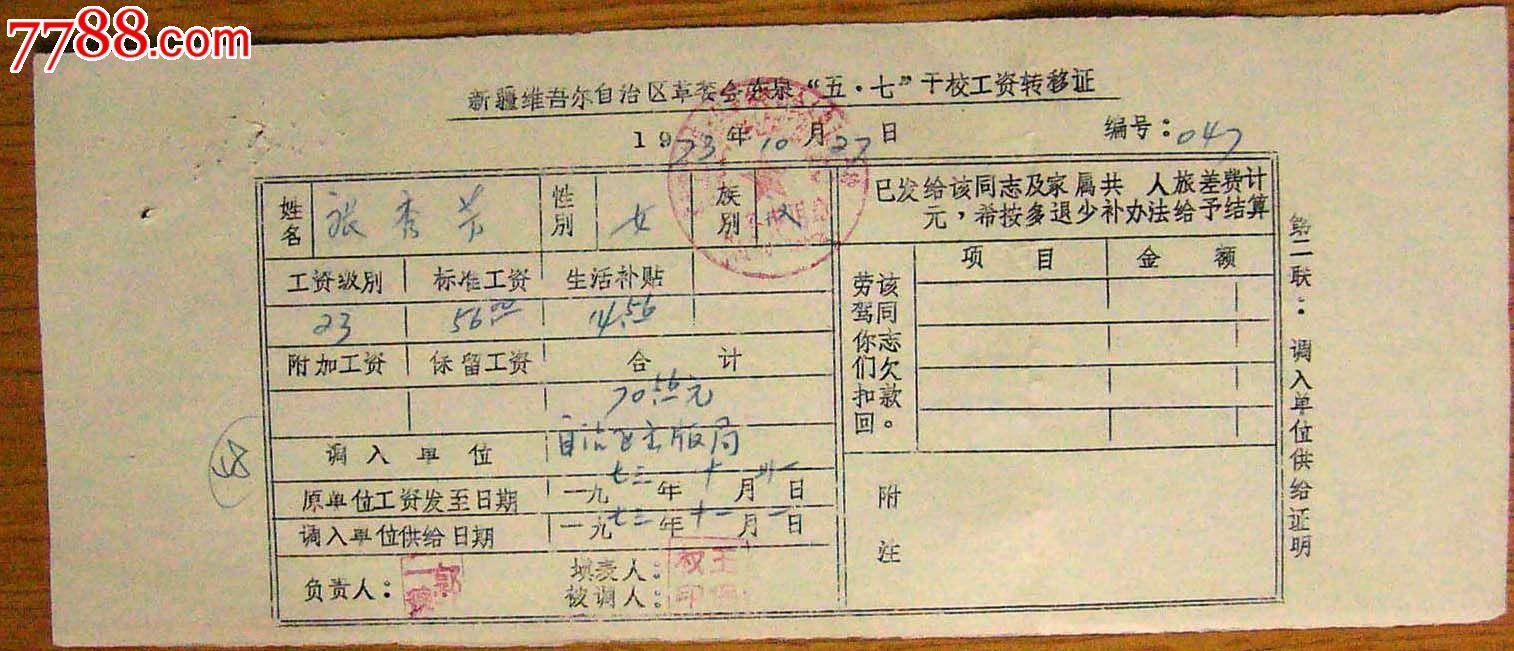 7788.com
新疆维吾尔自治区革委会 泉“五·七”干校工资转移证
1973年10月27日 编号：047
姓名 张秀芳 性别 女 族别 汉
已发给该同志及家属共 人旅差费计
元，希按多退少补办法给予结算
工资级别 标准工资 生活补贴
项目 金额
23 56.00 14.56
附加工资 保留工资 合计
70.56元
该同志欠款。
劳驾你们扣回
调入单位 自治区出版局
原单位工资发至日期 一九七三年十月卅一日
调入单位供给日期 一九七三年十一月一日
附注
负责人： 填表人：
被调人：
第二联：调入单位供给证明